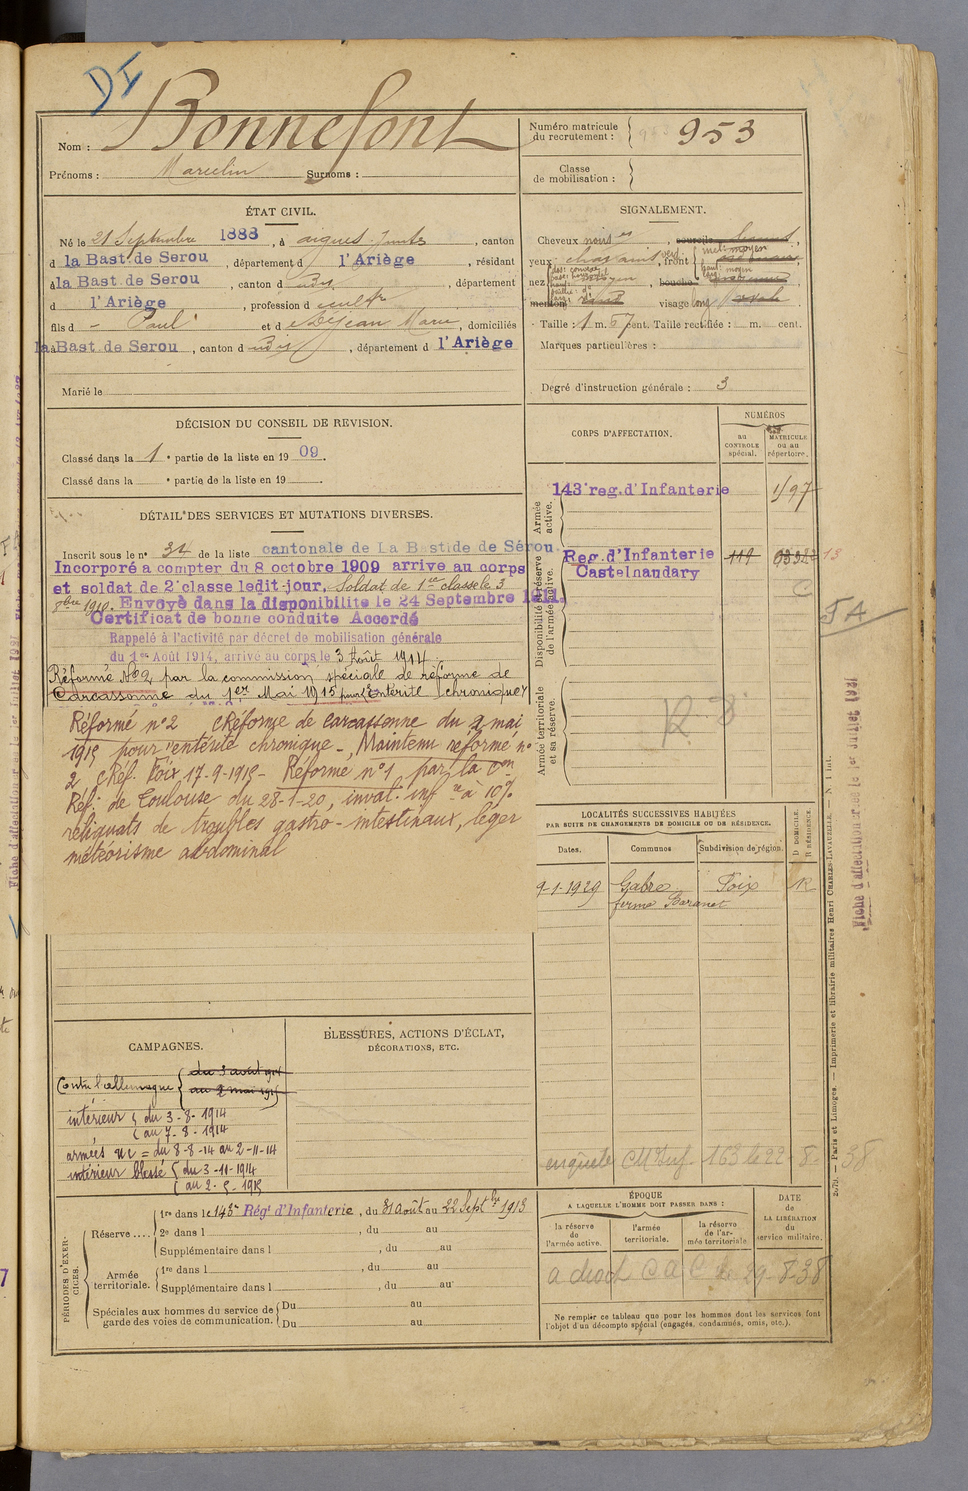 DI
Nom : Bonnefont
Prénoms : Marcelin Surnoms :
Numéro matricule du recrutement : 953
Classe de mobilisation :
ÉTAT CIVIL.
Né le 21 Septembre 1888, à aigues-Juntes, canton
d la Bast. de Serou, département d l'Ariège, résidant
à la Bast. de Serou, canton d dudit, département
d l'Ariège, profession d cultr
fils d - Paul et d Déjean Marie, domiciliés
à la Bast. de Serou, canton d dudit, département d l'Ariège
Marié le
SIGNALEMENT.
Cheveux noirs, sourcils
yeux chatains verts, front
incl: moyen
nez
dos: convexe
base: horizale
haut: moyen
bouche
menton visage long
Taille : 1 m. 57 cent. Taille rectifiée : m. cent.
Marques particulières :
Degré d'instruction générale : 3
DÉCISION DU CONSEIL DE REVISION.
Classé dans la 1e partie de la liste en 1909.
Classé dans la e partie de la liste en 19
CORPS D'AFFECTATION.
NUMÉROS
au CONTROLE spécial.
MATRICULE ou au répertoire.
Armée active.
143e reg. d'Infanterie
Disponibilité et réserve de l'armée active.
Reg. d'Infanterie 119
Castelnaudary
C
Armée territoriale et sa réserve.
R
5A
DÉTAIL DES SERVICES ET MUTATIONS DIVERSES.
Inscrit sous le n° 34 de la liste cantonale de La Bastide de Sérou
Incorporé a compter du 8 octobre 1909 arrive au corps
et soldat de 2e classe ledit-jour, Soldat de 1re classe le 3
8bre 1910. Envoyé dans la disponibilite le 24 Septembre 1911.
Certificat de bonne conduite Accordé
Rappelé à l'activité par décret de mobilisation générale
du 1er Août 1914, arrivé au corps le 3 Août 1914.
Réformé No 2 par la commission spéciale de réforme de
Carcassonne du 1er Mai 1915 pour "Entérite chronique"
Réformé n° 2 C Réforme de Carcassonne du 2 mai
1915 pour "entérite chronique - Maintenu réformé n°
2 C Réf. Foix 17-9-1915 - Réformé n° 1 par la Con
Réf: de Toulouse du 28-1-20, inval. infre à 10%
reliquats de troubles gastro-intestinaux, léger
météorisme abdominal
LOCALITÉS SUCCESSIVES HABITÉES
PAR SUITE DE CHANGEMENTS DE DOMICILE OU DE RÉSIDENCE.
Dates. Communes Subdivision de région. D DOMICILE. R RÉSIDENCE.
9-1-1929 Gabre Foix R
ferme Baranet
enquête 163 le 22-8-38
CAMPAGNES.
Contre l'allemagne du 3 août 1914
au 2 mai 1915
intérieur du 3-8-1914
au 7-8-1914
armées = du 8-8-14 au 2-11-14
intérieur blessé du 3-11-1914
au 2-5-1915
BLESSURES, ACTIONS D'ÉCLAT,
DÉCORATIONS, ETC.
PÉRIODES D'EXERCICES.
Réserve....
1re dans le 143e Rég' d'Infanterie, du 31 août au 22 Septbre 1913
2e dans l , du au
Supplémentaire dans l , du au
Armée territoriale.
1re dans l , du au
Supplémentaire dans l , du au
Spéciales aux hommes du service de garde des voies de communication.
Du au
Du au
ÉPOQUE
A LAQUELLE L'HOMME DOIT PASSER DANS :
la réserve de l'armée active.
l'armée territoriale.
la réserve de l'armée territoriale
DATE de LA LIBÉRATION du service militaire.
a droit C a C le 29-8-38
Ne remplir ce tableau que pour les hommes dont les services font
l'objet d'un décompte spécial (engagés, condamnés, omis, etc.).
2079. — Paris et Limoges. — Imprimerie et librairie militaires Henri CHARLES-LAVAUZELLE.
Fiche d'affectation créée le 1er Juillet 1931